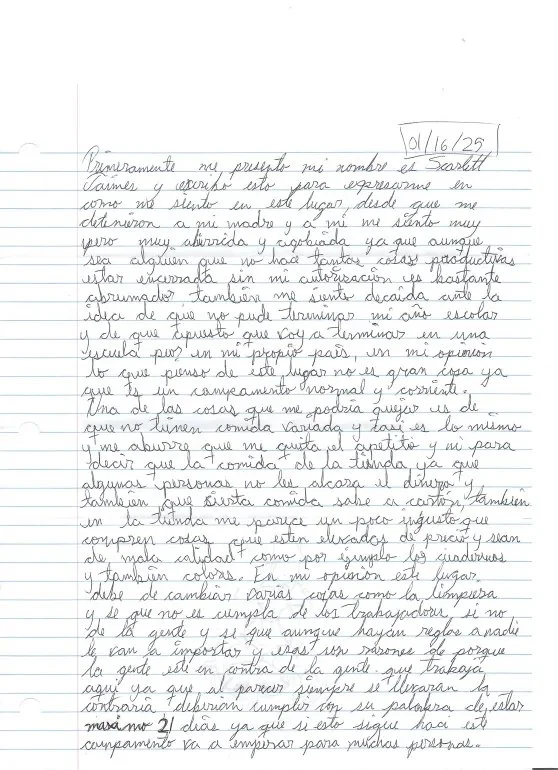 01/16/25
Primeramente me presento mi nombre es Scarlett
Jaimes y escribo esto para expresarme en
como me siento en este lugar, desde que me
detenieron a mi madre y a mi me siento muy
pero muy aburrida y agobiada ya que aunque
sea alguien que no hace tantas cosas productivas
estar encerrada sin mi autorización es bastante
abrumador también me siento decaida ante la
idea de que no pude terminar mi año escolar
y de que apuesto que voy a terminar en una
escuela peor en mi propio pais, en mi opinion
lo que pienso de este lugar no es gran cosa ya
que es un campamento normal y corriente.
Una de las cosas que me podria quejar es de
que no tienen comida variada y casi es lo mismo
y me aburre que me quita el apetito y ni para
decir que la comida de la tienda ya que
algunas personas no les alcara el dinero y
tambien que cierta comida sabe a cartón, tambien
en la tienda me parece un poco injusto que
compren cosas que esten elevados de precio y sean
de mala calidad como por ejemplo los cuadernos
y tambien colores. En mi opinion este lugar
debe de cambiar varias cosas como la limpieza
y se que no es cumpla de los trabajadores si no
de la gente y se que aunque hayan reglas a nadie
le van a importar y esas son rasones de porque
la gente este en contra de la gente que trabaja
aqui ya que al parecer siempre se llevaran la
contraria deberian cumplir con su palabra de estar
maximo 21 dias ya que si esto sigue haci este
campamento va a empeorar para muchas personas.